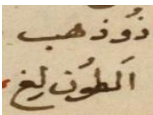 ذُو ذهب
اَلطُون لِغ